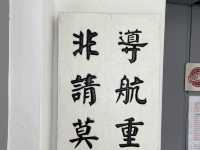 導航重
非請莫